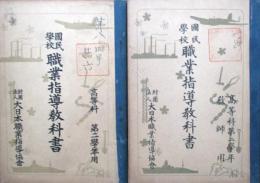 國民
學校
職業指導教科書
高等科 第二學年用
財團
法人 大日本職業指導協會
國民
學校
職業指導教科書
高等科第二學年
教師用
財團
法人 大日本職業指導協會